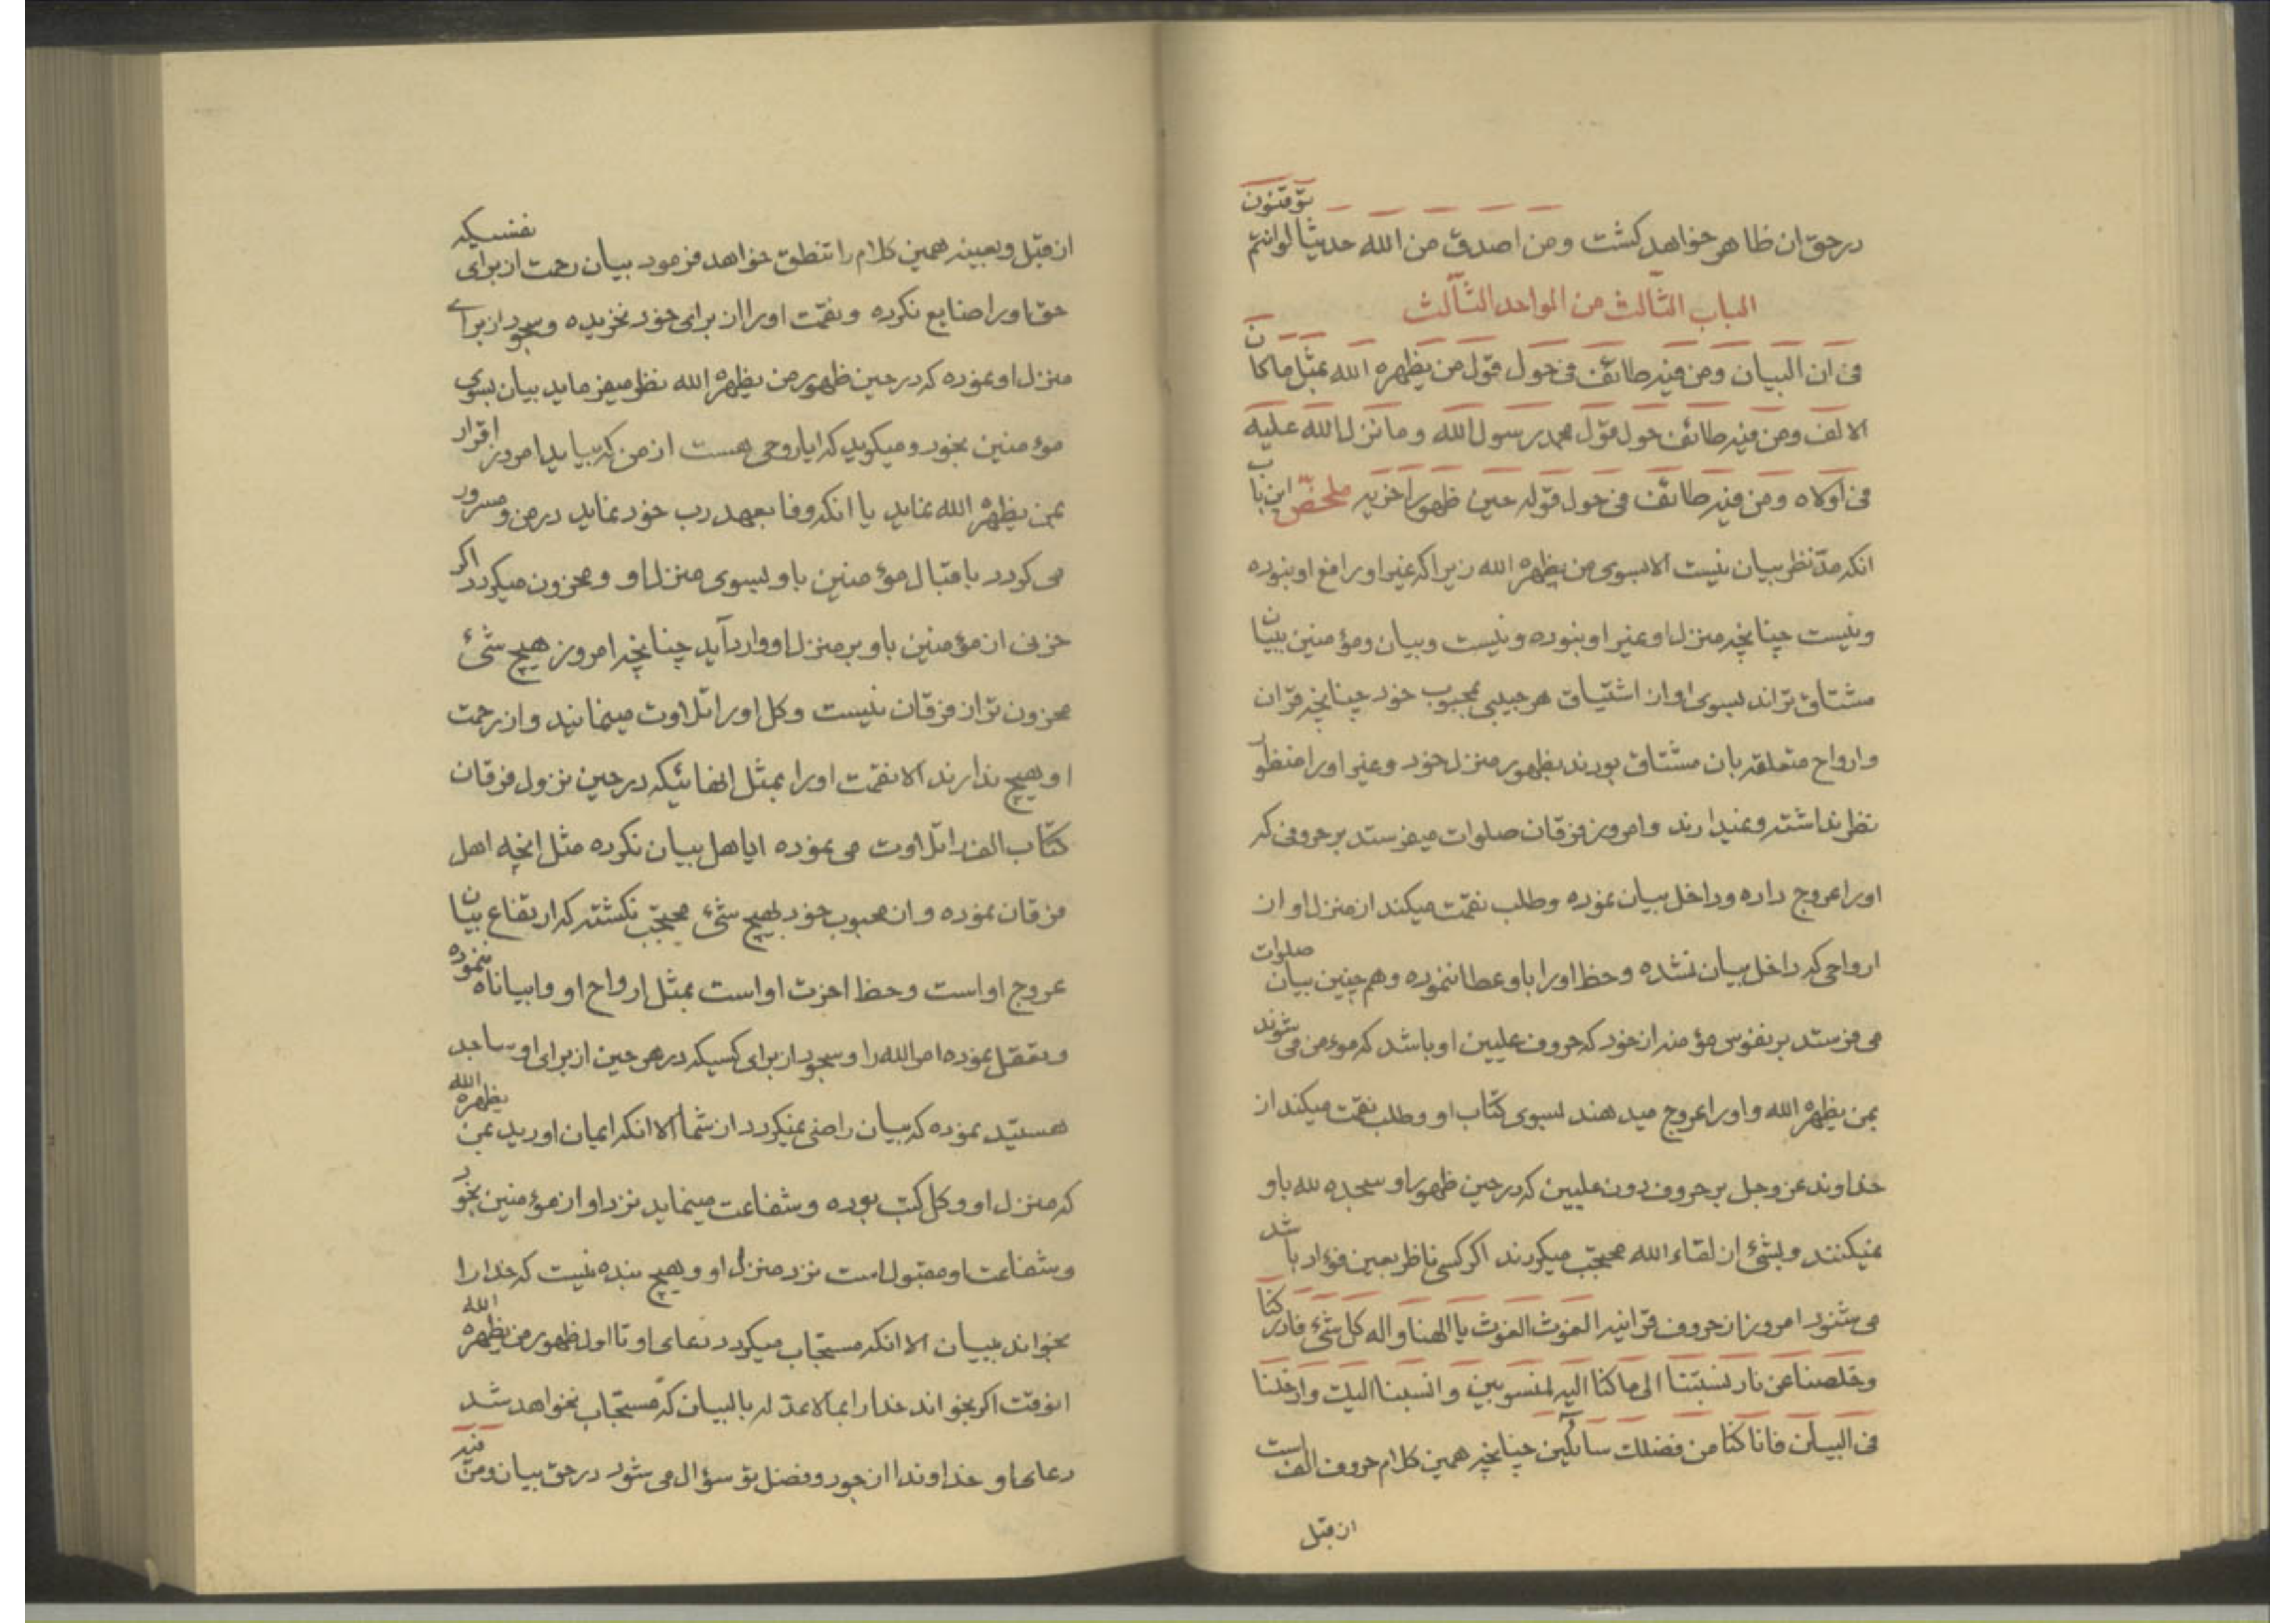 در حق ان ظاهر خواهد كشت ومن اصدق من الله حديثا لو انتم توقنون
الباب الثالث من الواحد الثالث
فى ان البيان ومن فيه طائف فى حول قول من يظهره الله بمثل ما كان
الالف ومن فيه طائف حول قول محمد رسول الله وما نزل الله عليه
فى اولاه ومن فيه طائف فى حول قوله حين ظهور اخريه ملخص اين باب
انكه مد نظر بيان نيست الا بسوى من يظهره الله زيرا كه غير او رافع او نبوده
و نيست چنانچه منزل او غير او نبوده و نيست و بيان و مؤمنين ببيان
مشتاق تراند بسوى او از اشتياق هر حبيبى بمحبوب خود چنانچه قران
و ارواح متعلقه بان مشتاق بودند بظهور منزل خود و غير او را منظور
نظر نداشته و نميدارند و امروز فرقان صلوات ميفرستد بر حروفى كه
او را عروج داده و داخل بيان نموده و طلب نقمت ميكند از منزل او از
ارواحى كه داخل بيان نشده و حظ او را باو عطا ننموده و هم چنين بيان صلوات
مى فرستد بر نفوس مؤمنه از خود كه حروف عليين او باشد كه موءمن مى شوند
بمن يظهره الله و او را عروج ميدهند بسوى كتاب او و طلب نقمت ميكند از
خداوند عز وجل بر حروف دون عليين كه در حين ظهور او سجده لله باو
نميكنند و بشئ از لقاء الله محتجب ميكردند اكر كسى ناظر بعين فؤاد باشد
مى شنود امروز از حروف قرانيه الغوث الغوث يا الهنا و اله كل شئ فادركنا
وخلصنا عن نار نسبتنا الى ما كنا اليه لمنسوبين و انسبنا اليك وادخلنا
فى البيان فانا كنا من فضلك سائلين چنانچه همين كلام حروف الف است
از قبل
از قبل و بعينه همين كلام را تنطق خواهد فرمود بيان رحمت از براى نفسيكه
حق او را ضايع نكرده و نقمت او را از براى خود نخريده و سجود از براے
منزل او نموده كه در حين ظهور من يظهره الله نظر ميفرمايد بيان بسوى
موء منين بخود و ميكويد كه ايا روحى هست از من كه بيايد امروز اقرار
بمن يظهره الله نمايد يا انكه وفا بعهد رب خود نمايد در من و مسرور
مى كردد باقبال مؤمنين باو بسوى منزل او و محزون ميكردد اكر
حزنى از مؤمنين باو بر منزل او وارد آيد چنانچه امروز هيچ شئ
محزون تر از فرقان نيست و كل او را تلاوت مينمايند و از رحمت
او هيچ ندارند الا نقمت او را بمثل انهائيكه در حين نزول فرقان
كتاب الف را تلاوت مى نموده ايا اهل بيان نكرده مثل انچه اهل
فرقان نموده و از محبوب خود بهيچ شئ محتجب نكشته كه ارتفاع بيان
عروج او است و حظ اخرت او است بمثل ارواح او و ابيانا ننموده
و تعقل نموده امر الله را و سجود از براى كسيكه در هر حين از براى او ساجد
هستيد نموده كه بيان راضى نميكردد از شما الا انكه ايمان اوريد بمن يظهره الله
كه منزل او و كل كتب بوده و شفاعت مينمايد نزد او از موءمنين بخود
و شفاعت او مقبول است نزد منزل او و هيچ بنده نيست كه خدا را
بخواند ببيان الا انكه مستجاب ميكردد دعاى او تا اول ظهور من يظهره الله
انوقت اكر بخواند خدا را بما لا عدل له بالبيان كه مستجاب نخواهد شد
دعاى او خداوندا از جود و فضل تو سؤال مى شود در حق بيان و من فيه